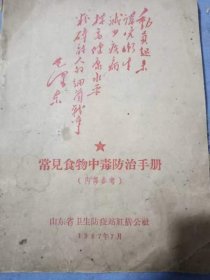 动员起来
讲究卫生
减少疾病
提高健康水平
粉碎敌人的细菌战争
毛泽东
常見食物中毒防治手册
(内部参考)
山东省卫生防疫站红 公社
1967年7月